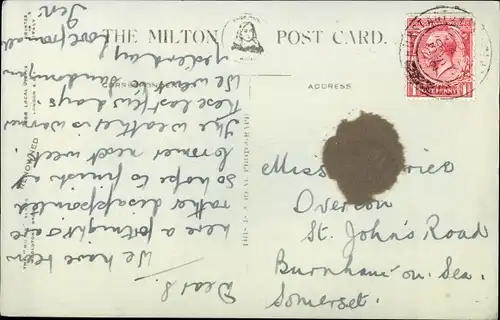 THE MILTON POST CARD.
ADDRESS
THIS IS A REAL PHOTOGRAPH
Dear S.
We have been
here a fortnight & are
rather disappointed
so hope to finish
Cromer next week.
The weather is warmer
these last few days
We went to Sandringham
yesterday
Love from all
Jen
Miss
Overcon
St. John's Road
Burnham-on-Sea.
Somerset.